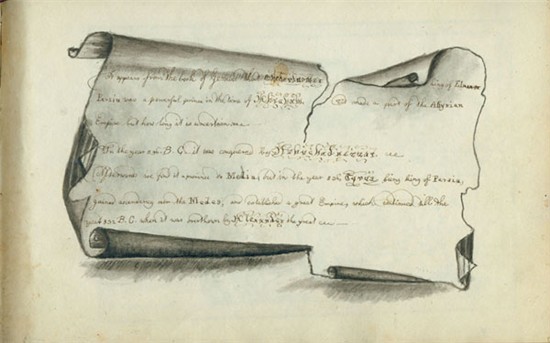 It appears from the book of Genesis that king of Elam or
Persia was a powerful prince in the time of Abraham. made a part of the Assyrian
Empire but how long it is uncertain
In the year B.C. it was conquered by Nebuchadnezzar.
Afterwards we find it a province to Media, but in the year 536 Cyrus being king of Persia,
gained ascendency over the Medes, and established a great Empire, which continued till the
year 331 B.C. when it was overthrown by Alexander the great